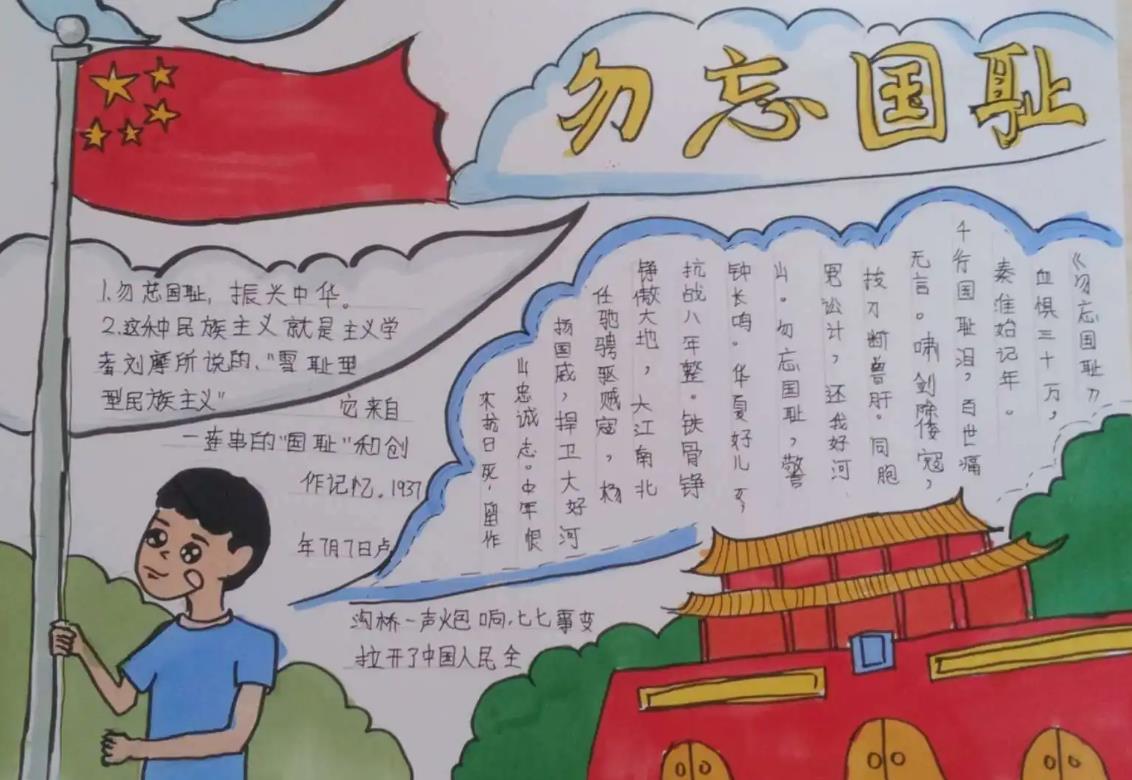 勿忘国耻
1.勿忘国耻，振兴中华。
2.这种民族主义就是主义学
者刘摩所说的，"雪耻型
型民族主义"
它来自
一连串的"国耻"和创
作记忆。1937
年7月7日卢
沟桥一声炮响，七七事变
拉开了中国人民全
《勿忘国耻》
血惧三十万，
秦淮始记年。
千行国耻泪，百世痛
无言。啸剑除倭寇，
拔刀断兽肝。同胞
冤讼计，还我好河
山。勿忘国耻，警
钟长鸣。华夏好儿女，
抗战八年整。铁骨铮
铮傲大地，大江南北
任驰骋驱贼寇，杨
扬国威，捍卫大好河
山忠诚志。中年恨
未抗日死，留作